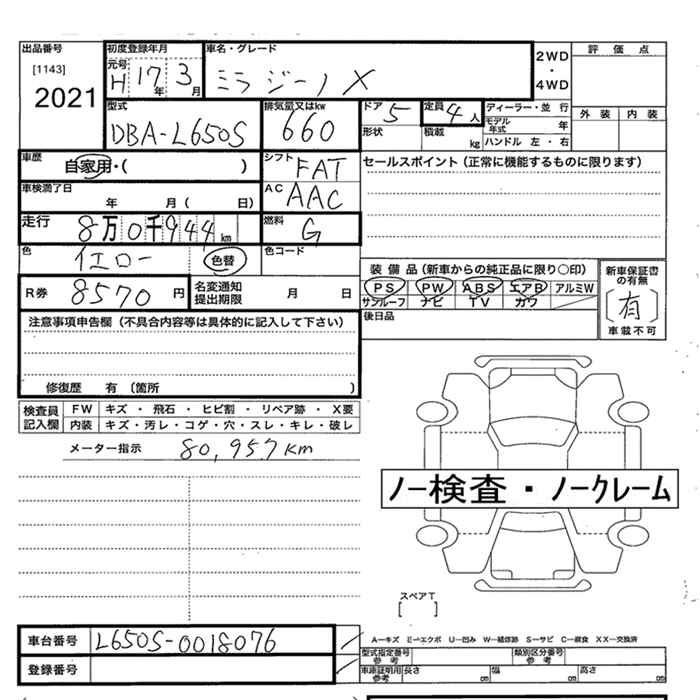 出品番号 初度登録年月 車名・グレード 評価点
[1143] 元号 2WD
2021 H 17年 3月 ミラ ジーノ X ・
4WD
型式 排気量又はkw ドア 5 定員 4人 ディーラー・並行 外装 内装
DBA-L650S 660 形状 積載 kg モデル年式 年
ハンドル 左・右
車歴 自家用・( ) シフト FAT セールスポイント(正常に機能するものに限ります)
車検満了日 年 月( 日) AC AAC
走行 8万0千944km 燃料 G
色 イエロー 色替 色コード
装備品(新車からの純正品に限り○印) 新車保証書の有無
R券 8570円 名変通知提出期限 月 日 PS PW ABS エアB アルミW 〔有〕
サンルーフ ナビ TV カワ 車載不可
注意事項申告欄(不具合内容等は具体的に記入して下さい) 後日品
修復歴 有(箇所 )
検査員 FW キズ・飛石・ヒビ割・リペア跡・X要
記入欄 内装 キズ・汚レ・コゲ・穴・スレ・キレ・破レ
メーター指示 80,957km
ノー検査・ノークレーム
スペアT
[ ]
車台番号 L650S-0018076 A-キズ E-エクボ U-凹み W-補修跡 S-サビ C-腐食 XX-交換済
型式指定番号参考 類別区分番号参考
登録番号 車庫証明用参考 長さ cm 幅 cm 高さ cm